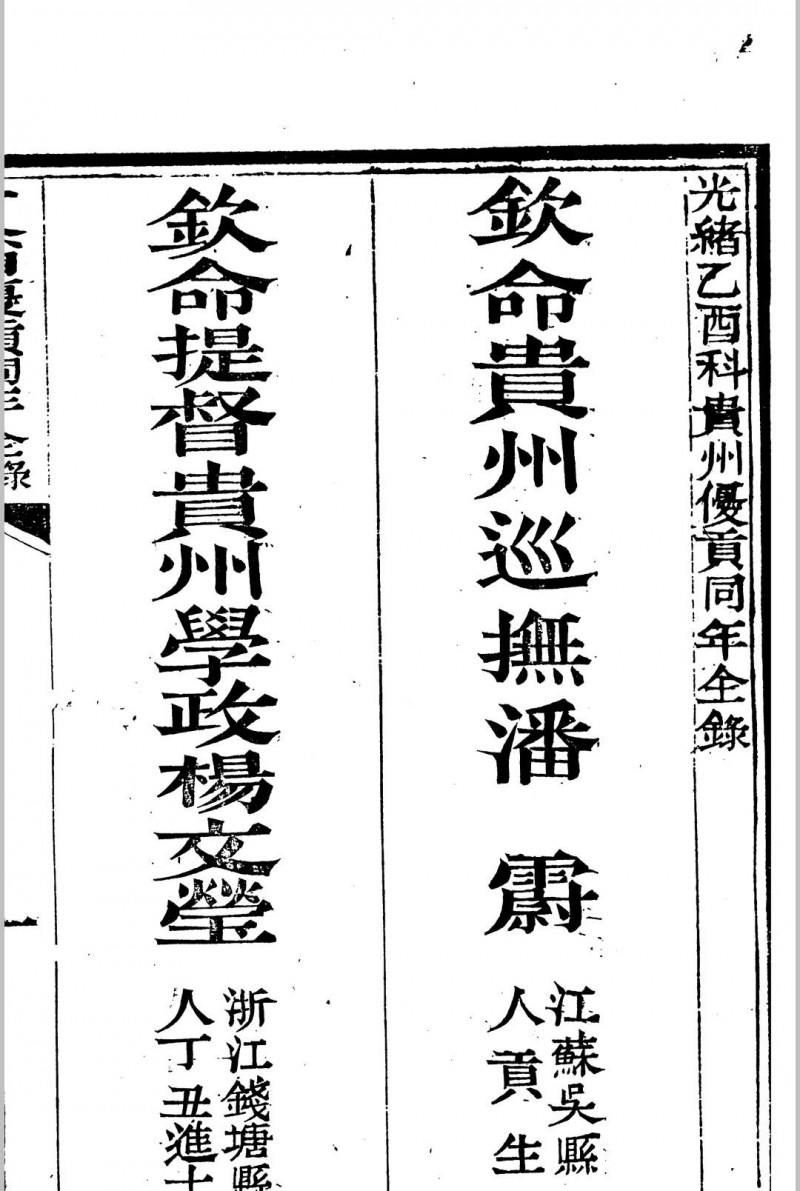 光緒乙酉科貴州優貢同年全錄
欽命貴州巡撫潘　霨
江蘇吳縣
人貢生
欽命提督貴州學政楊文瑩
浙江錢塘縣
人丁丑進士
優貢同年全錄
一